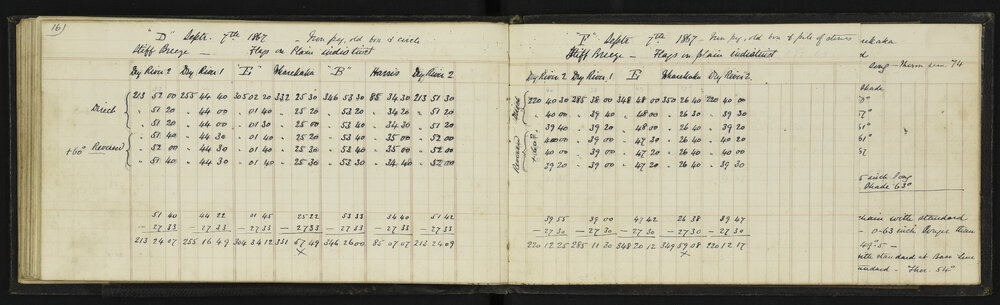 161
"D" Septr. 7th 1867 - Iron peg, old box & circle
Stiff Breeze - Flags on Plain indistinct
Dry River 2 Dry River 1 "E" Wharekaka "B" Harris Dry River 2
Direct
213 52 00 255 44 40 305 02 20 332 25 30 346 53 30 85 34 30 213 51 30
" 51 20 " 44 00 " 01 40 " 25 20 " 53 20 " 34 20 " 51 20
" 51 20 " 44 00 " 01 30 " 25 00 " 53 40 " 34 30 " 51 20
+60° Reversed
" 51 40 " 44 30 " 01 40 " 25 20 " 53 40 " 35 00 " 52 00
" 52 00 " 44 30 " 01 30 " 25 30 " 53 40 " 35 00 " 52 00
" 51 40 " 44 30 " 01 40 " 25 30 " 53 30 " 34 40 " 52 00
51 40 44 22 01 45 25 22 53 33 34 40 51 42
- 27 33 - 27 33 - 27 33 - 27 33 - 27 33 - 27 33 - 27 33
213 24 07 255 16 49 304 34 12 331 57 49 346 26 00 85 07 07 213 24 09
x
Septr. 7th 1867 - Iron peg, old box & pile of stones
Stiff Breeze - Flags on plain indistinct
Dry River 2 Dry River 1 E Wharekaka Dry River 2
Direct
220 40 30 285 38 00 348 48 00 350 26 40 220 40 00
" 40 00 " 39 40 " 48 00 " 26 30 " 39 30
" 39 40 " 39 20 " 48 00 " 26 40 " 39 20
Reversed +60°
" 40 00 " 39 00 " 47 30 " 26 40 " 40 00
" 40 00 " 39 00 " 47 20 " 26 40 " 40 00
" 39 20 " 39 00 " 47 20 " 26 40 " 39 30
39 55 39 00 47 42 26 38 39 47
- 27 30 - 27 30 - 27 30 - 27 30 - 27 30
220 12 25 285 11 30 348 20 12 349 59 08 220 12 17
x
ekaka
d
long - therm
74
Shade
61°
61°
5 inch long
Shade 63°
chain with standard
- 0.63 inch longer than
49°.5 -
with standard at Base Line
- Ther. 54°